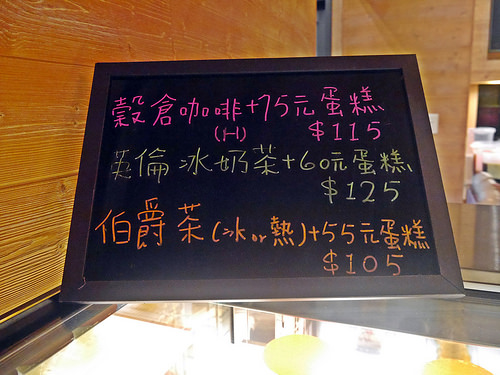 穀倉咖啡+75元蛋糕
(H) $115
英倫冰奶茶+60元蛋糕
$125
伯爵茶(冰or熱)+55元蛋糕
$105